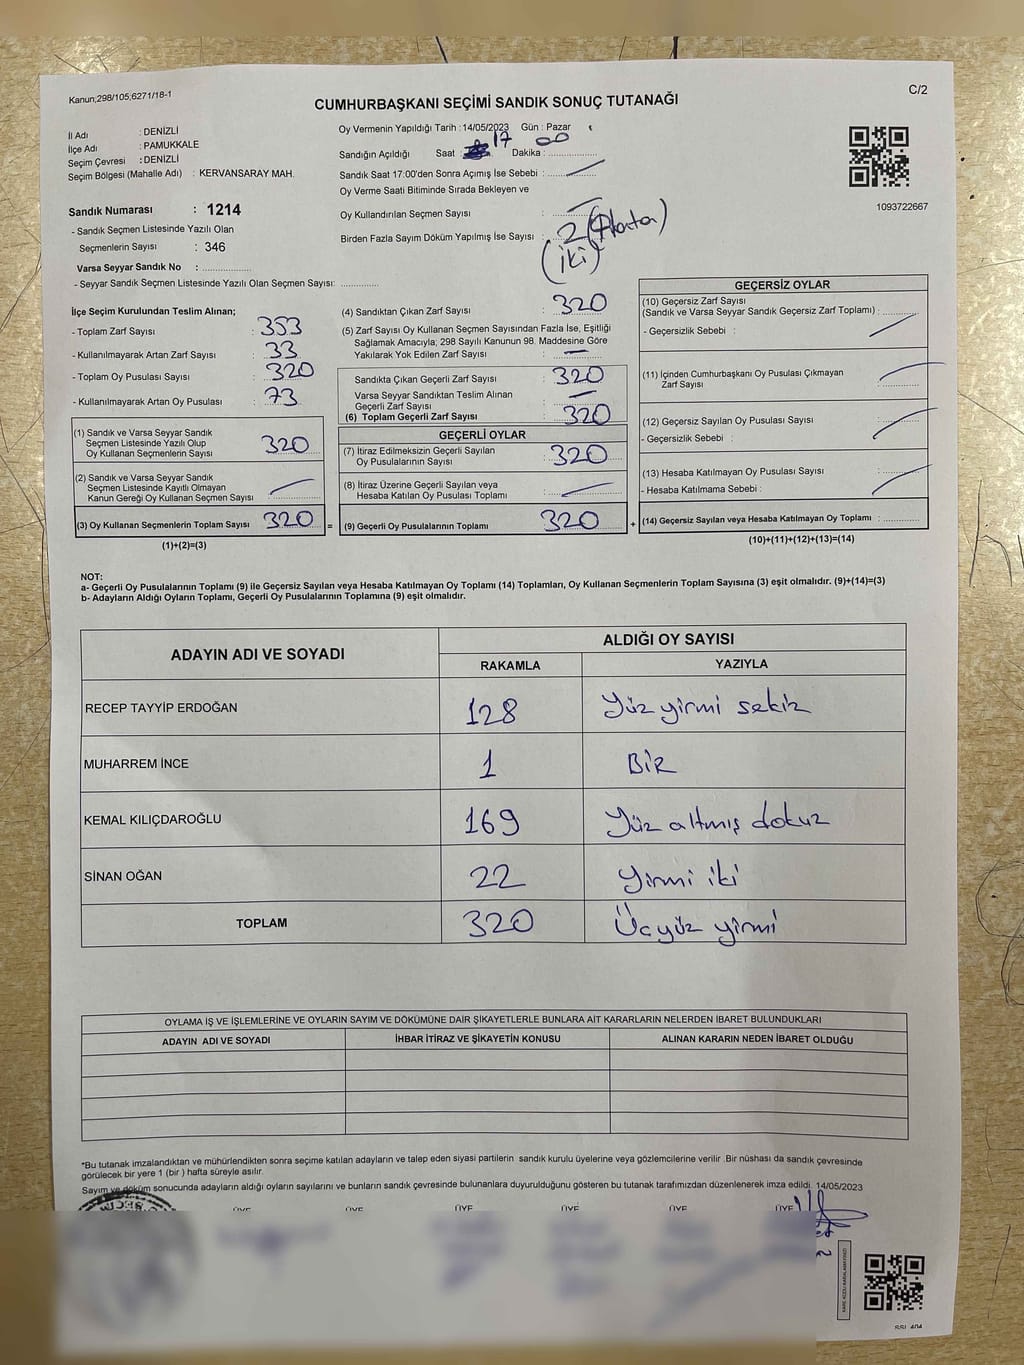 Kanun;298/105;6271/18-1
C/2
CUMHURBAŞKANI SEÇİMİ SANDIK SONUÇ TUTANAĞI
İl Adı : DENİZLİ
İlçe Adı : PAMUKKALE
Seçim Çevresi : DENİZLİ
Seçim Bölgesi (Mahalle Adı) : KERVANSARAY MAH.
Oy Vermenin Yapıldığı Tarih : 14/05/2023 Gün : Pazar
Sandığın Açıldığı Saat : 17 Dakika : 00
Sandık Saat 17:00'den Sonra Açımış İse Sebebi :
Oy Verme Saati Bitiminde Sırada Bekleyen ve
Oy Kullandırılan Seçmen Sayısı :
Birden Fazla Sayım Döküm Yapılmış İse Sayısı : 2
(iki)
1093722667
Sandık Numarası : 1214
- Sandık Seçmen Listesinde Yazılı Olan
Seçmenlerin Sayısı : 346
Varsa Seyyar Sandık No :
- Seyyar Sandık Seçmen Listesinde Yazılı Olan Seçmen Sayısı:
İlçe Seçim Kurulundan Teslim Alınan;
- Toplam Zarf Sayısı : 353
- Kullanılmayarak Artan Zarf Sayısı : 33
- Toplam Oy Pusulası Sayısı : 320
- Kullanılmayarak Artan Oy Pusulası : 73
(1) Sandık ve Varsa Seyyar Sandık
Seçmen Listesinde Yazılı Olup
Oy Kullanan Seçmenlerin Sayısı : 320
(2) Sandık ve Varsa Seyyar Sandık
Seçmen Listesinde Kayıtlı Olmayan
Kanun Gereği Oy Kullanan Seçmen Sayısı :
(3) Oy Kullanan Seçmenlerin Toplam Sayısı : 320 =
(1)+(2)=(3)
(4) Sandıktan Çıkan Zarf Sayısı : 320
(5) Zarf Sayısı Oy Kullanan Seçmen Sayısından Fazla İse, Eşitliği
Sağlamak Amacıyla; 298 Sayılı Kanunun 98. Maddesine Göre
Yakılarak Yok Edilen Zarf Sayısı : —
Sandıkta Çıkan Geçerli Zarf Sayısı : 320
Varsa Seyyar Sandıktan Teslim Alınan
Geçerli Zarf Sayısı : —
(6) Toplam Geçerli Zarf Sayısı : 320
GEÇERLİ OYLAR
(7) İtiraz Edilmeksizin Geçerli Sayılan
Oy Pusulalarının Sayısı : 320
(8) İtiraz Üzerine Geçerli Sayılan veya
Hesaba Katılan Oy Pusulası Toplamı :
(9) Geçerli Oy Pusulalarının Toplamı : 320 +
GEÇERSİZ OYLAR
(10) Geçersiz Zarf Sayısı
(Sandık ve Varsa Seyyar Sandık Geçersiz Zarf Toplamı) :
- Geçersizlik Sebebi :
(11) İçinden Cumhurbaşkanı Oy Pusulası Çıkmayan
Zarf Sayısı :
(12) Geçersiz Sayılan Oy Pusulası Sayısı :
- Geçersizlik Sebebi :
(13) Hesaba Katılmayan Oy Pusulası Sayısı :
- Hesaba Katılmama Sebebi :
(14) Geçersiz Sayılan veya Hesaba Katılmayan Oy Toplamı :
(10)+(11)+(12)+(13)=(14)
NOT:
a- Geçerli Oy Pusulalarının Toplamı (9) ile Geçersiz Sayılan veya Hesaba Katılmayan Oy Toplamı (14) Toplamları, Oy Kullanan Seçmenlerin Toplam Sayısına (3) eşit olmalıdır. (9)+(14)=(3)
b- Adayların Aldığı Oyların Toplamı, Geçerli Oy Pusulalarının Toplamına (9) eşit olmalıdır.
ADAYIN ADI VE SOYADI ALDIĞI OY SAYISI
RAKAMLA YAZIYLA
RECEP TAYYİP ERDOĞAN 128 Yüz yirmi sekiz
MUHARREM İNCE 1 BİR
KEMAL KILIÇDAROĞLU 169 Yüz altmış dokuz
SİNAN OĞAN 22 Yirmi iki
TOPLAM 320 Üçyüz yirmi
OYLAMA İŞ VE İŞLEMLERİNE VE OYLARIN SAYIM VE DÖKÜMÜNE DAİR ŞİKAYETLERLE BUNLARA AİT KARARLARIN NELERDEN İBARET BULUNDUKLARI
ADAYIN ADI VE SOYADI İHBAR İTİRAZ VE ŞİKAYETİN KONUSU ALINAN KARARIN NEDEN İBARET OLDUĞU
*Bu tutanak imzalandıktan ve mühürlendikten sonra seçime katılan adayların ve talep eden siyasi partilerin sandık kurulu üyelerine veya gözlemcilerine verilir .Bir nüshası da sandık çevresinde
görülecek bir yere 1 (bir ) hafta süreyle asılır.
Sayım ve döküm sonucunda adayların aldığı oyların sayılarını ve bunların sandık çevresinde bulunanlara duyurulduğunu gösteren bu tutanak tarafımızdan düzenlenerek imza edildi. 14/05/2023
ÜYE ÜYE ÜYE ÜYE ÜYE ÜYE